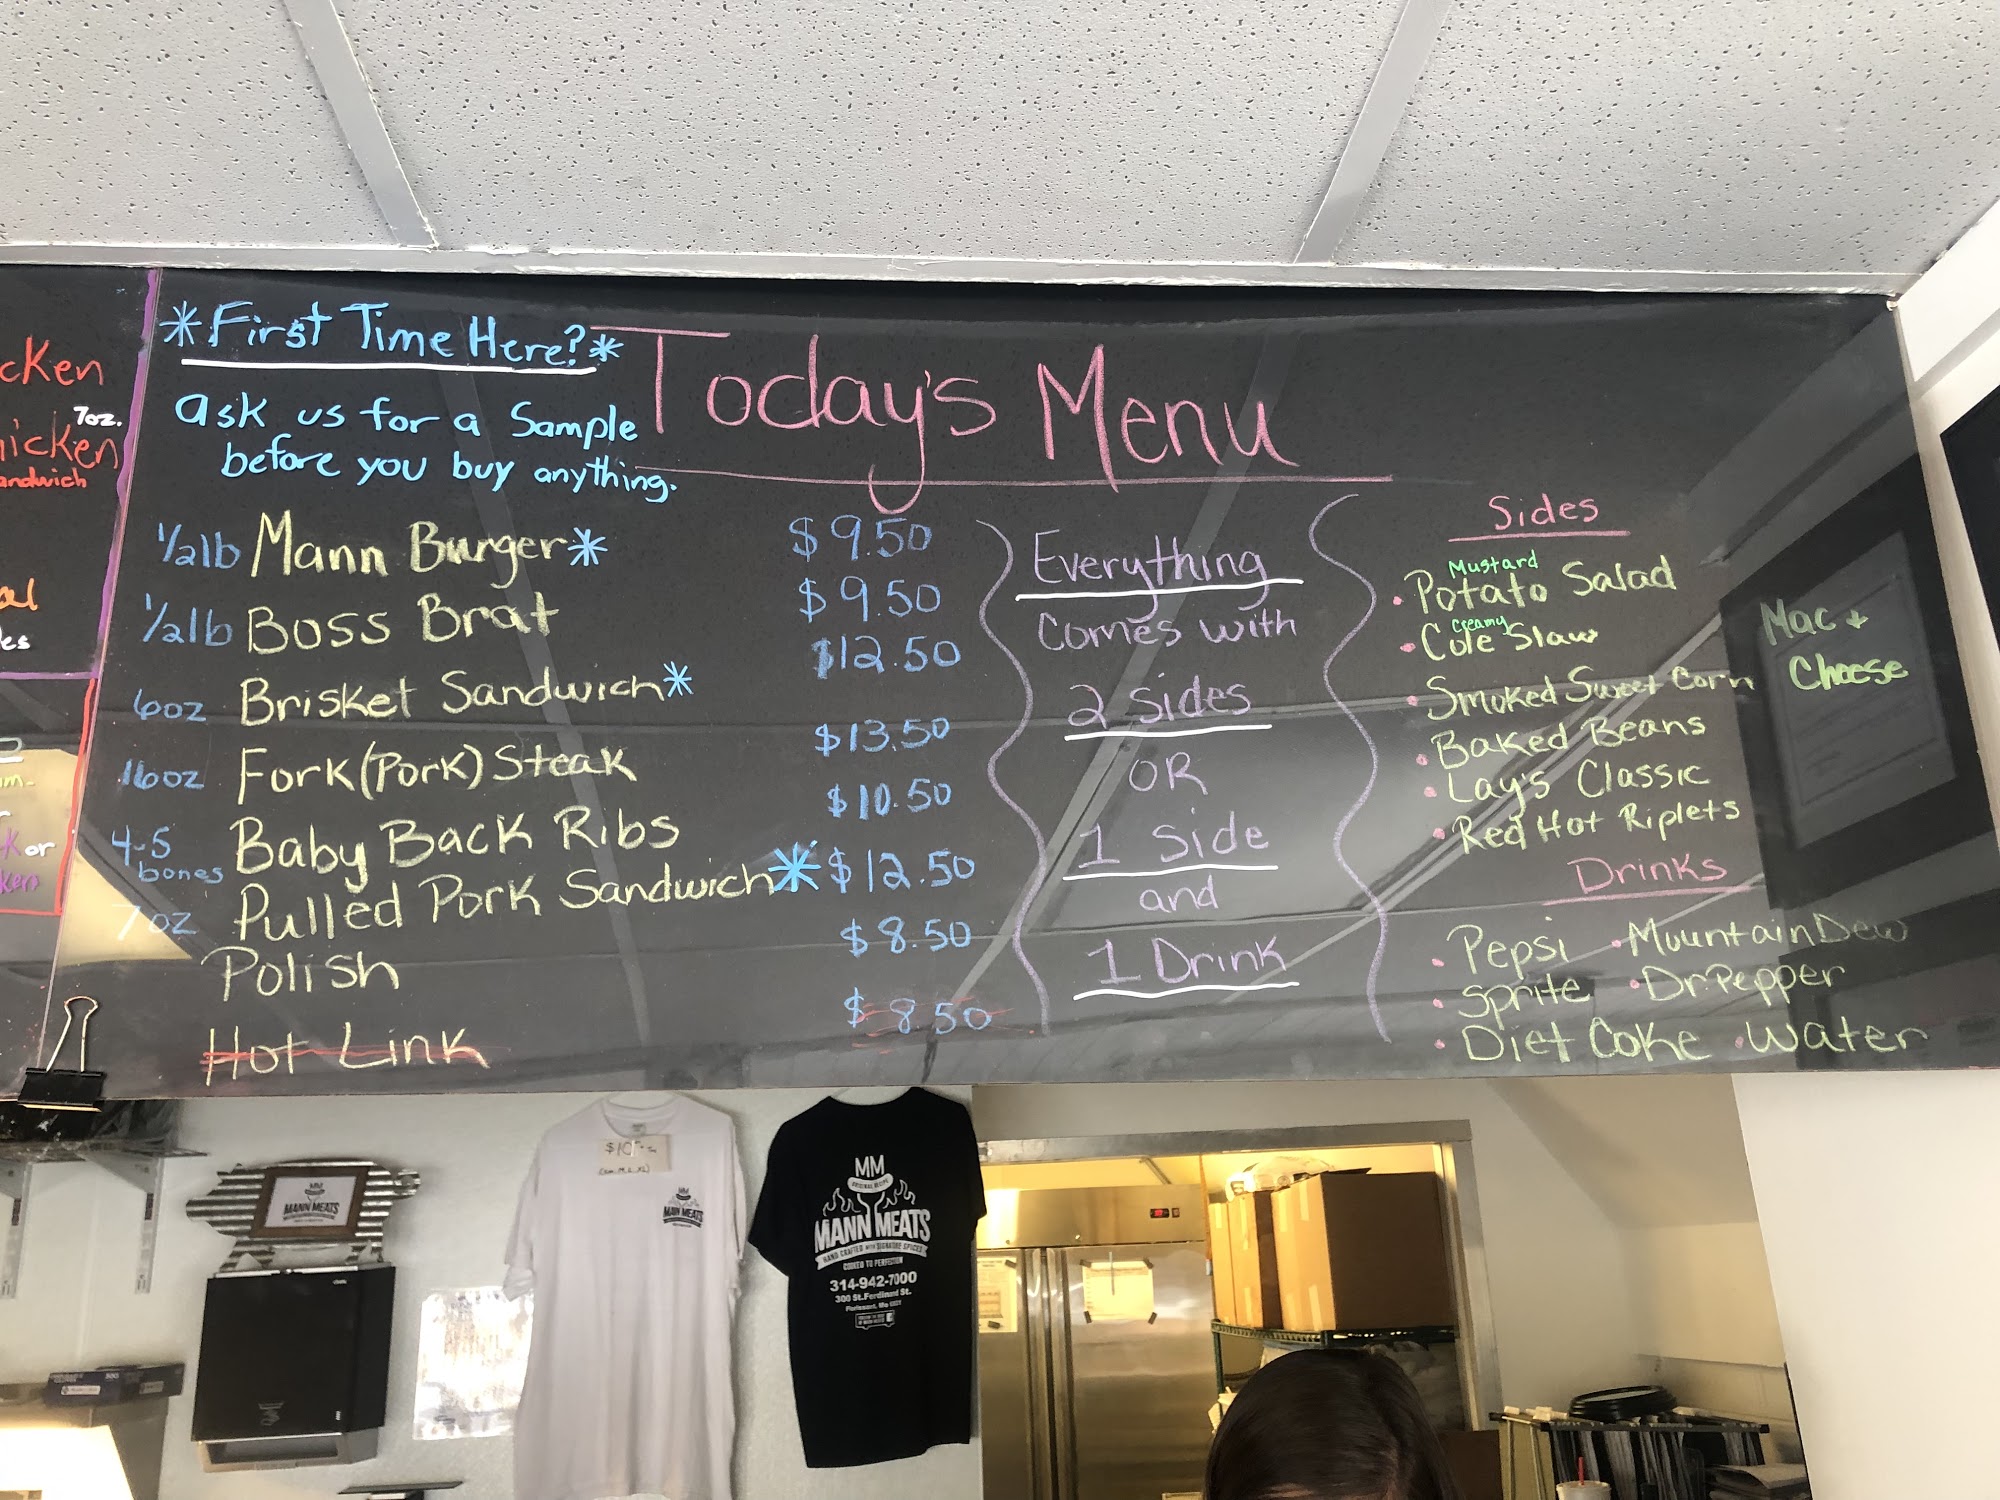 cken
7oz.
hicken
andwich
al
les
or
*First Time Here?*
ask us for a sample
before you buy anything.
Today's Menu
1/2lb Mann Burger* $9.50
1/2lb Boss Brat $9.50
6oz Brisket Sandwich* $12.50
16oz Fork (Pork) Steak $13.50
4-5 bones Baby Back Ribs $10.50
7oz Pulled Pork Sandwich* $12.50
Polish $8.50
Hot Link $8.50
Everything
comes with
2 sides
OR
1 Side
and
1 Drink
Sides
Mustard
• Potato Salad
Creamy
• Cole Slaw
• Smoked Sweet Corn
• Baked Beans
• Lay's Classic
• Red Hot Riplets
Mac +
Cheese
Drinks
• Pepsi • Mountain Dew
• Sprite • Dr Pepper
• Diet Coke • Water
MM
MANN MEATS
$10
MANN MEATS
MM
ORIGINAL RECIPE
MANN MEATS
HAND CRAFTED WITH SIGNATURE SPICES
COOKED TO PERFECTION
314-942-7000
300 St. Ferdinand St.
Florissant, Mo